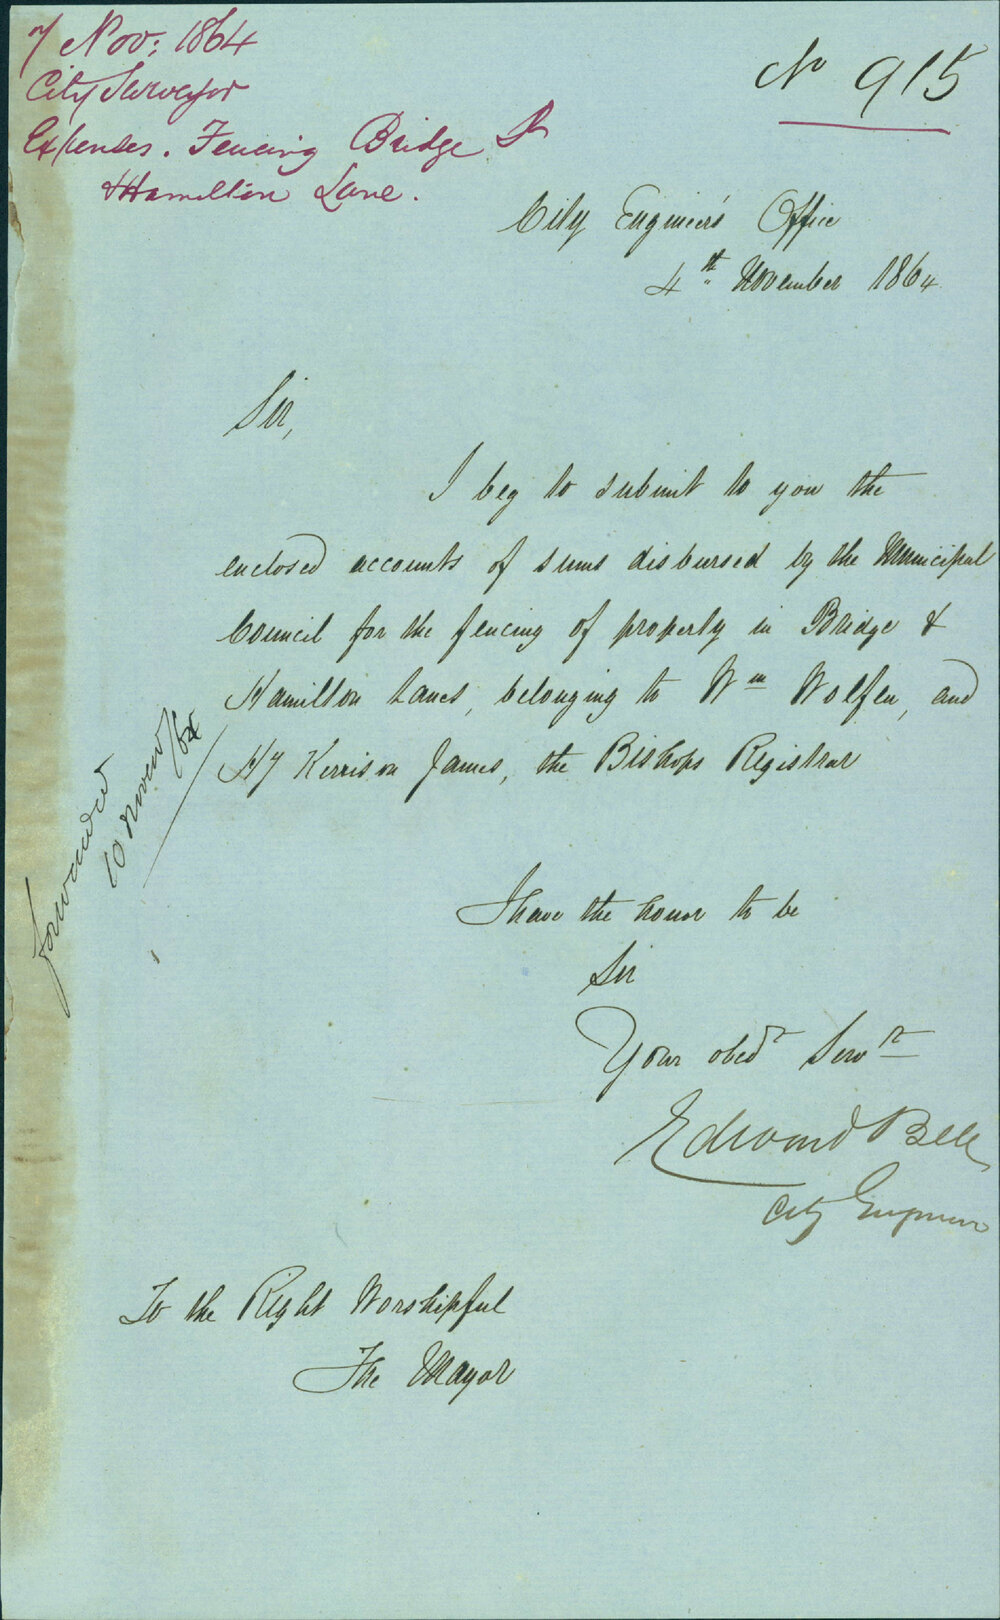 7 Nov: 1864
City Surveyor
Expenses. Fencing Bridge St
& Hamilton Lane.
No 915
City Engineer's Office
4th November 1864
Sir,
I beg to submit to you the
enclosed accounts of sums disbursed by the Municipal
Council for the fencing of property in Bridge &
Hamilton Lanes, belonging to Wm Wolfen, and
Hy Kerrison James, the Bishops Registrar
forwarded
10 Novem/64
I have the honor to be
Sir
Your obedt Servt
Edward Bell
City Engineer
To the Right Worshipful
The Mayor